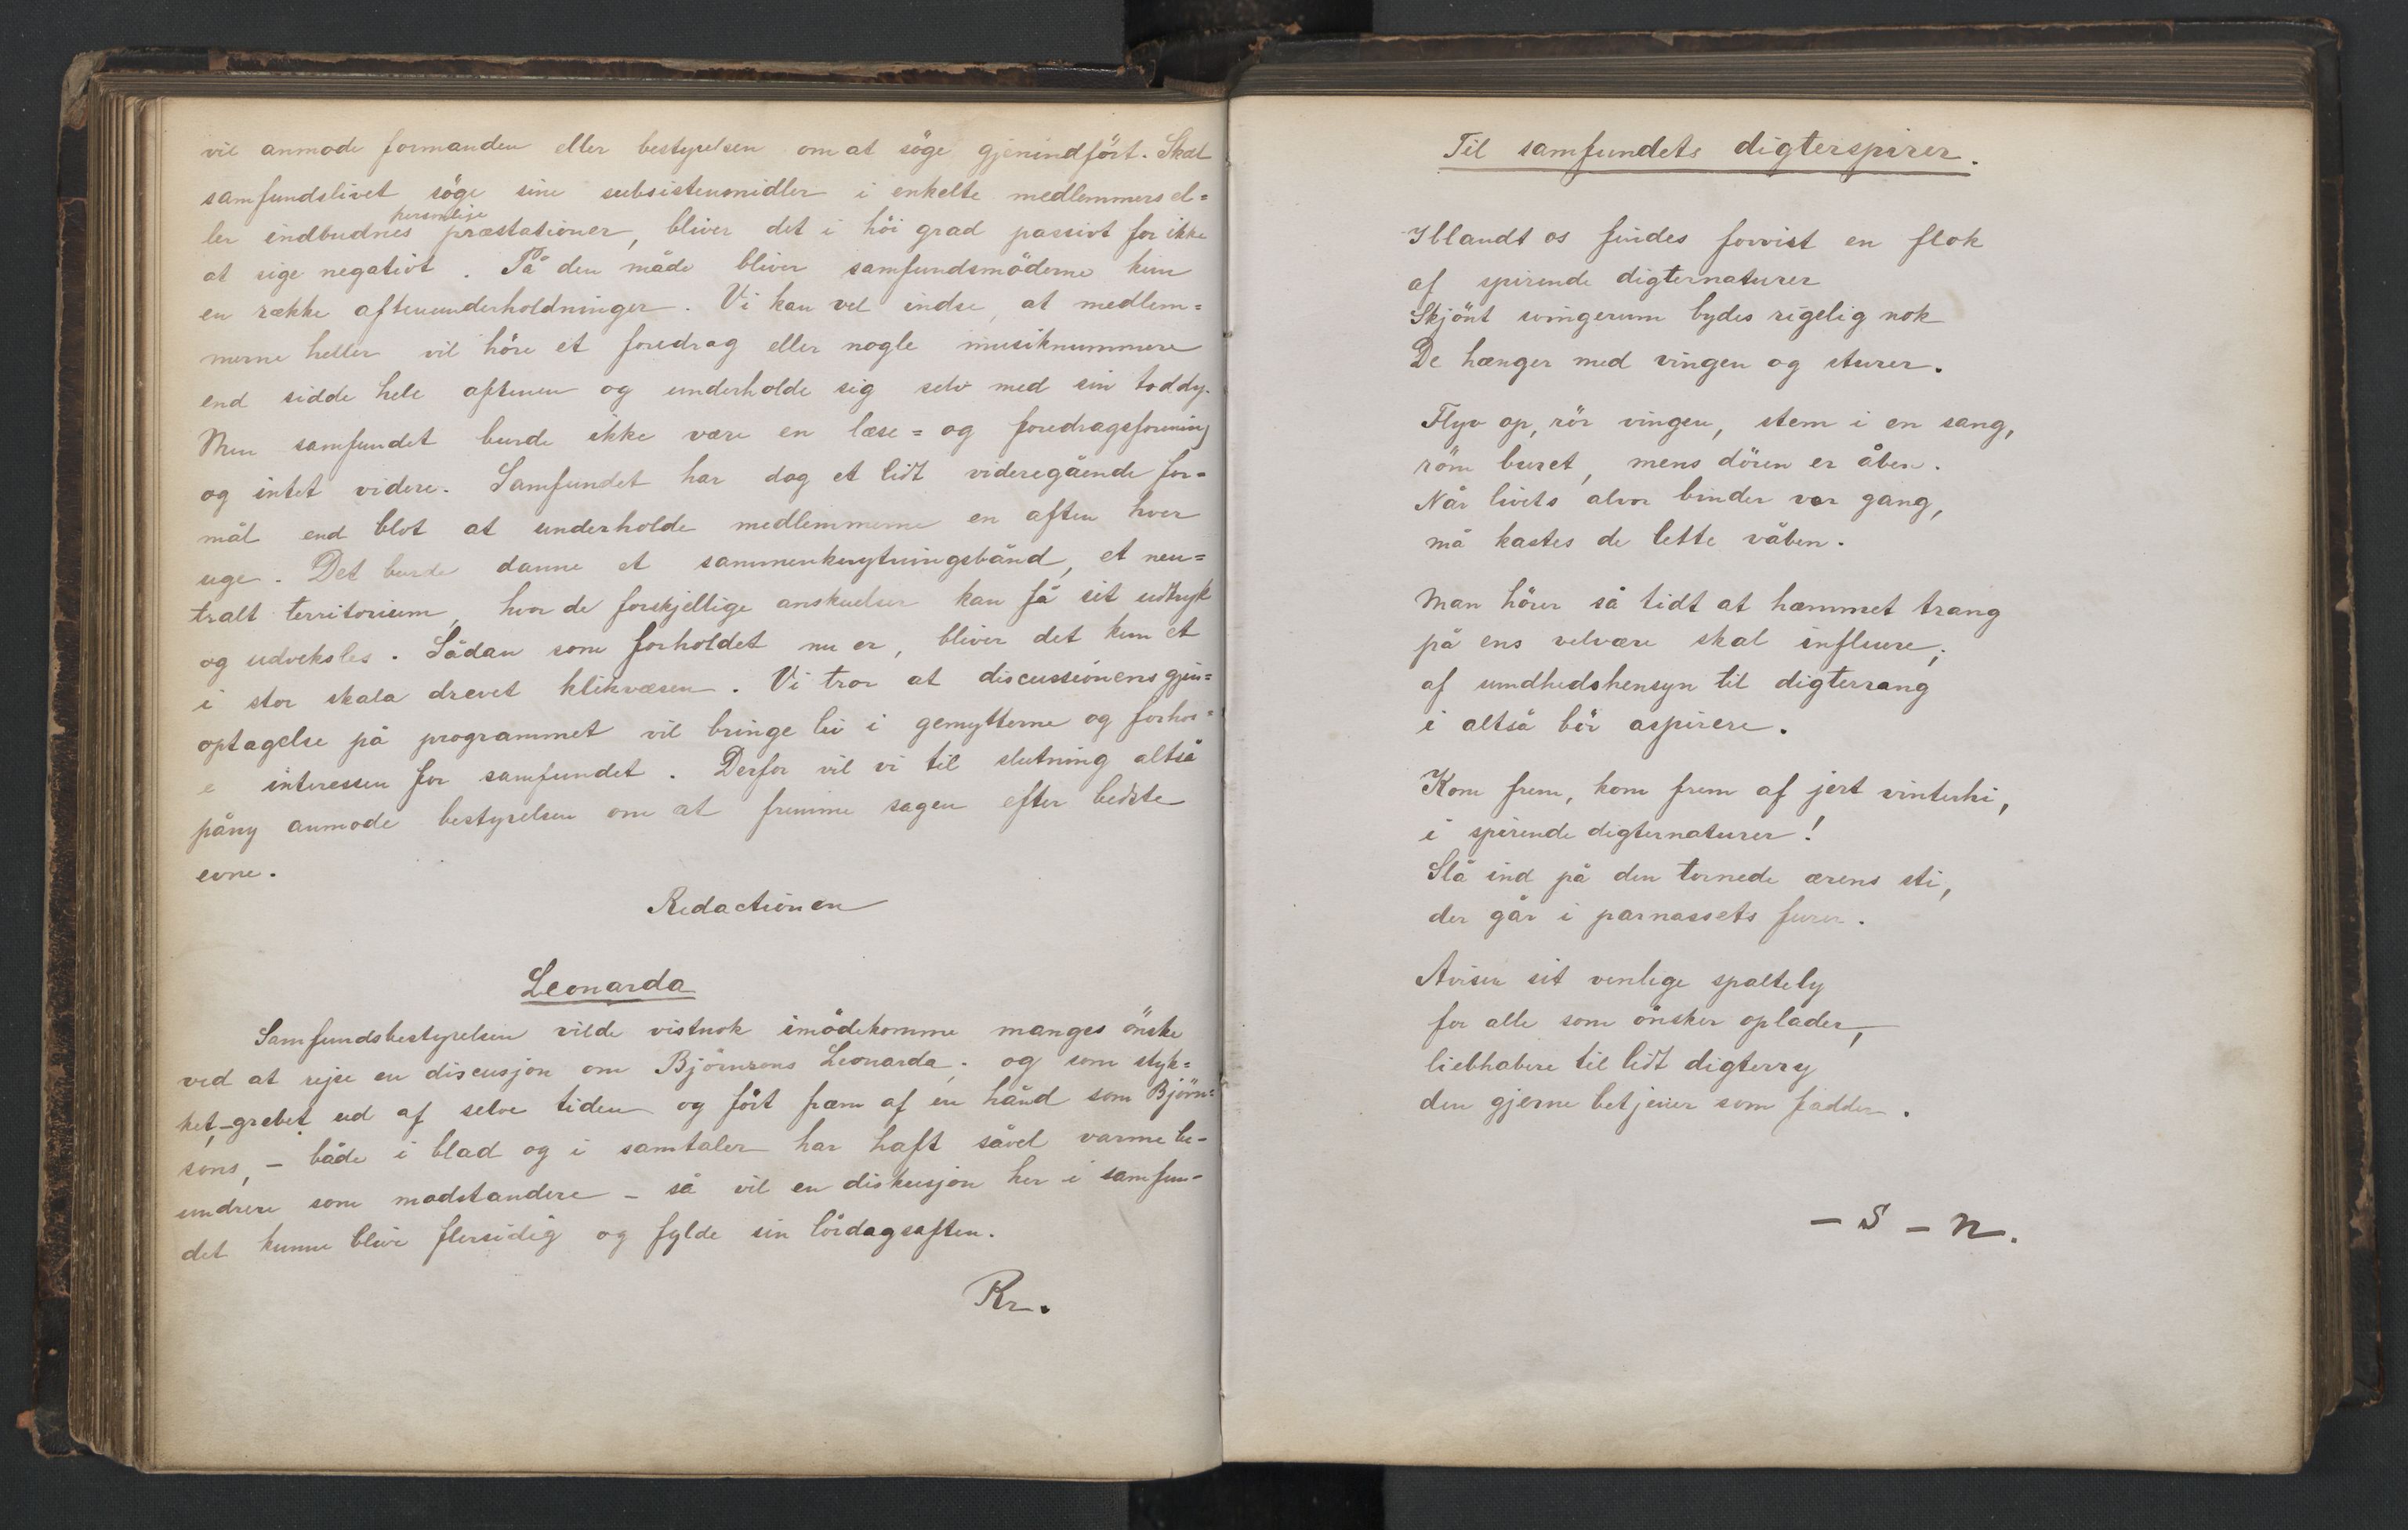 vil anmode formanden eller bestyrelsen om at söge gjenindfört. Skal
samfundslivet söge sine subsistensmidler i enkelte medlemmers el=
personlige
ler indbudnes præstationer, bliver det i höi grad passivt for ikke
at sige negativt. På den måde bliver samfundsmöderne kun
en række aftenunderholdninger. Vi kan vel indse, at medlem=
merne heller vil höre et foredrag eller nogle musiknummere
end sidde hele aftenen og underholde sig selv med sin toddy.
Men samfundet burde ikke være en læse= og foredragsforening
og intet videre. Samfundet har dog et lidt videregående for=
mål end blot at underholde medlemmerne en aften hver
uge. Det burde danne et sammenknytningsbånd, et neu=
tralt territorium, hvor de forskjellige anskuelser kan få sit udtryk
og udveksles. Sådan som forholdet nu er, bliver det kun et
i stor skala drevet klikvæsen. Vi tror at discussionens gjen=
optagelse på programmet vil bringe liv i gemytterne og forhöi=
e interessen for samfundet. Derfor vil vi til slutning altså
påny anmode bestyrelsen om at fremme sagen efter bedste
evne.
Redactionen
Leonarda
Samfundsbestyrelsen vilde vistnok imödekomme manges önske
ved at rejse en discusjon om Björnsons Leonarda; og som styk=
ket, – grebet ud af selve tiden og fört fræm af en hånd som Björn=
sons, – både i blad og i samtaler har haft såvel varme be-
undrere som modstandere – så vil en diskusjon her i samfun-
det kunne blive flersidig og fylde sin lördagsaften.
Kr.
Til samfundets digterspirer.
Iblandt os findes forvist en flok
af spirende digternaturer
Skjönt svingerum bydes rigelig nok
De hænger med vingen og sturer.
Flyv op, rör vingen, stem i en sang,
röm buret, mens dören er åben.
Når livets alvor binder vor gang,
må kastes de lette våben.
Man hörer så tidt at hæmmet trang
på ens velvære skal influere;
af sundhedshensyn til digterrang
i altså bör aspirere.
Kom frem, kom frem af jert vinterhi,
i spirende digternaturer!
Slå ind på den tornede ærens sti,
der går i parnassets furer.
Avisen sit venlige spaltely
for alle som önsker oplader,
liebhabere til lidt digterry
den gjerne betjener som fadder.
– S – n.